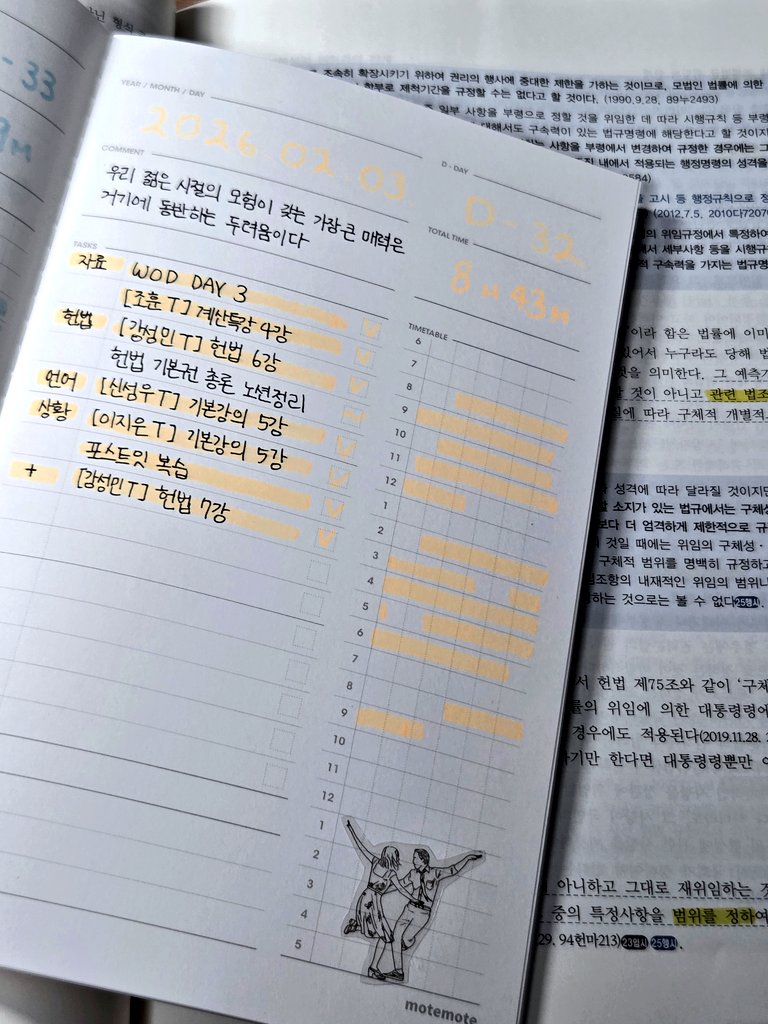 - 33
YEAR / MONTH / DAY
2026. 02. 03.
D - DAY
D - 32
COMMENT
우리 젊은 시절의 모험이 갖는 가장 큰 매력은
거기에 동반하는 두려움이다
TOTAL TIME
8H 43M
TASKS
자료 WOD DAY 3
[조훈T] 계산특강 4강
헌법 [강성민T] 헌법 6강
헌법 기본전 총론 노션정리
언어 [신성우T] 기본강의 5강
상황 [이지윤T] 기본강의 5강
포스트잇 복습
+ [강성민T] 헌법 7강
TIMETABLE
6
7
8
9
10
11
12
1
2
3
4
5
6
7
8
9
10
11
12
1
2
3
4
5
motemote
조속히 확장시키기 위하여 권리의 행사에 중대한 제한을 가하는 것이므로, 모법인 법률에 의한
함부로 제척기간을 규정할 수는 없다고 할 것이다. (1990.9.28, 89누2493)
일부 사항을 부령으로 정할 것을 위임한 데 따라 시행규칙 등 부령
대해서도 구속력이 있는 법규명령에 해당한다고 할 것이지
사항을 부령에서 변경하여 규정한 경우에는 그
내에서 적용되는 행정명령의 성격을
584)
고시 등 행정규칙으로 정
(2012.7.5, 2010다7207
의 위임규정에서 특정하여
에서 세부사항 등을 시행규
구속력을 가지는 법규명
이라 함은 법률에 이미
있어서 누구라도 당해 법
것을 의미한다. 그 예측가
할 것이 아니고 관련 법조
에 따라 구체적 개별적
성격에 따라 달라질 것이지만
소지가 있는 법규에서는 구체성
보다 더 엄격하게 제한적으로 규
것일 때에는 위임의 구체성 ·
구체적 범위를 명백히 규정하고
조항의 내재적인 위임의 범위나
하는 것으로는 볼 수 없다 25행시.
서 헌법 제75조와 같이 '구체
률의 위임에 의한 대통령령에
경우에도 적용된다(2019.11.28. 2
하기만 한다면 대통령령뿐만 아
아니하고 그대로 재위임하는 것
중의 특정사항을 범위를 정하여
29. 94헌마213) 23입시 25행시.